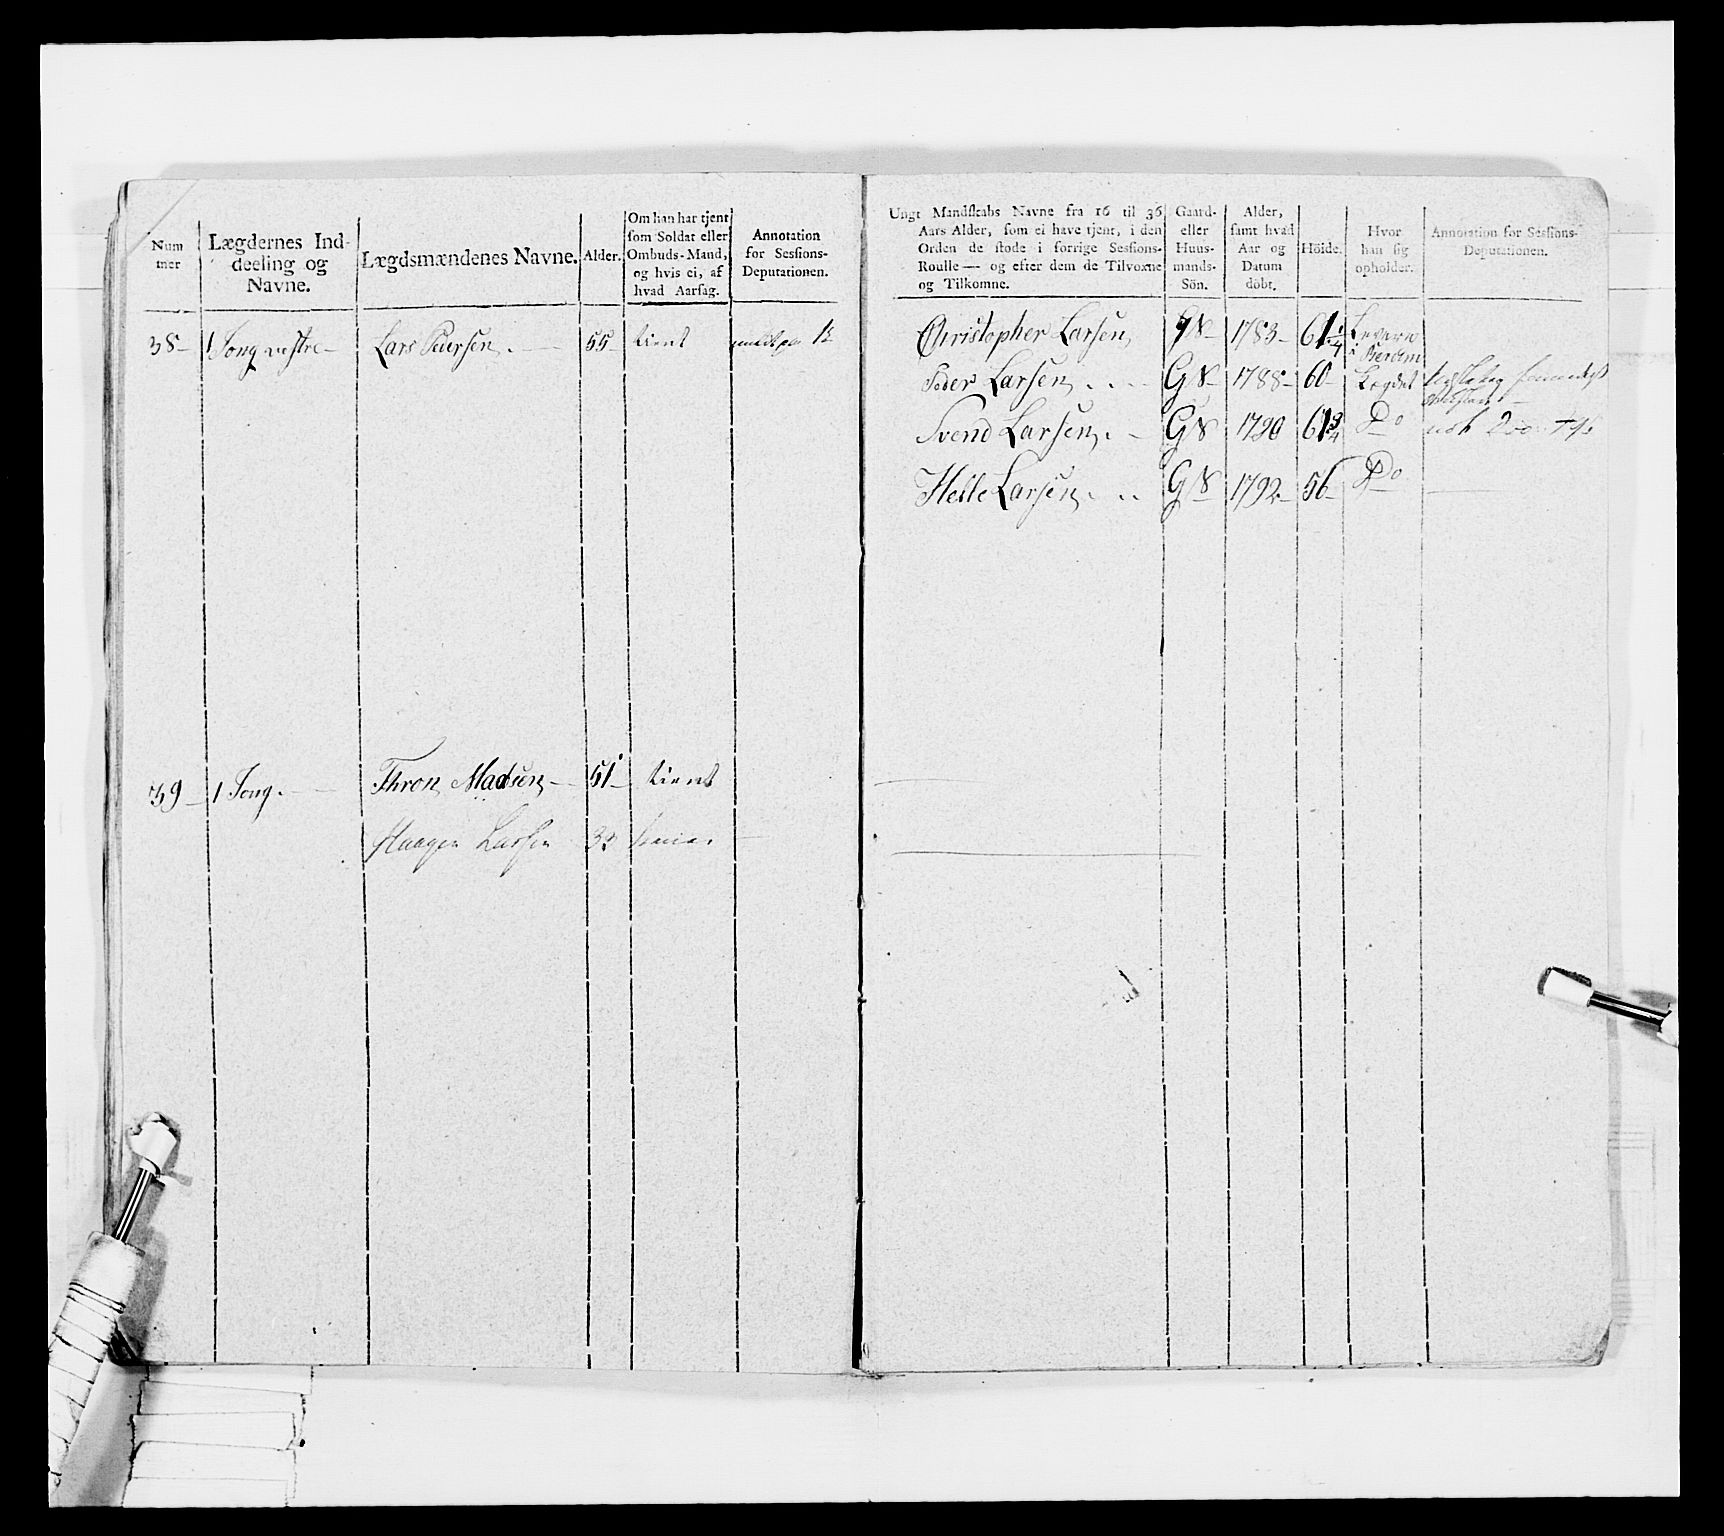 Num
mer
Lægdernes Ind-
deeling og
Navne.
Lægdsmændenes Navne.
Alder.
Om han har tjent
som Soldat eller
Ombuds-Mand,
og hvis ei, af
hvad Aarsag.
Annotation
for Sessions-
Deputationen.
38 1 Jong vestre Lars Pedersen 55 tient
39 1 Jong. Thron Madsen 51 tient
Haagen Larsen 32
Ungt Mandskabs Navne fra 16 til 36
Aars Alder, som ei have tjent, i den
Orden de stode i forrige Sessions-
Roulle — og efter dem de Tilvoxne
og Tilkomne.
Gaard-
eller
Huus-
mands-
Sön.
Alder,
samt hvad
Aar og
Datum
döbt.
Höide.
Hvor
han sig
opholder.
Annotation for Sessions-
Deputationen.
Christopher Larsen GS 1783 61 1/4
Peder Larsen GS 1788 60 Lægdet
Svend Larsen GS 1790 61 3/4 Do
Helle Larsen GS 1792 56 Do